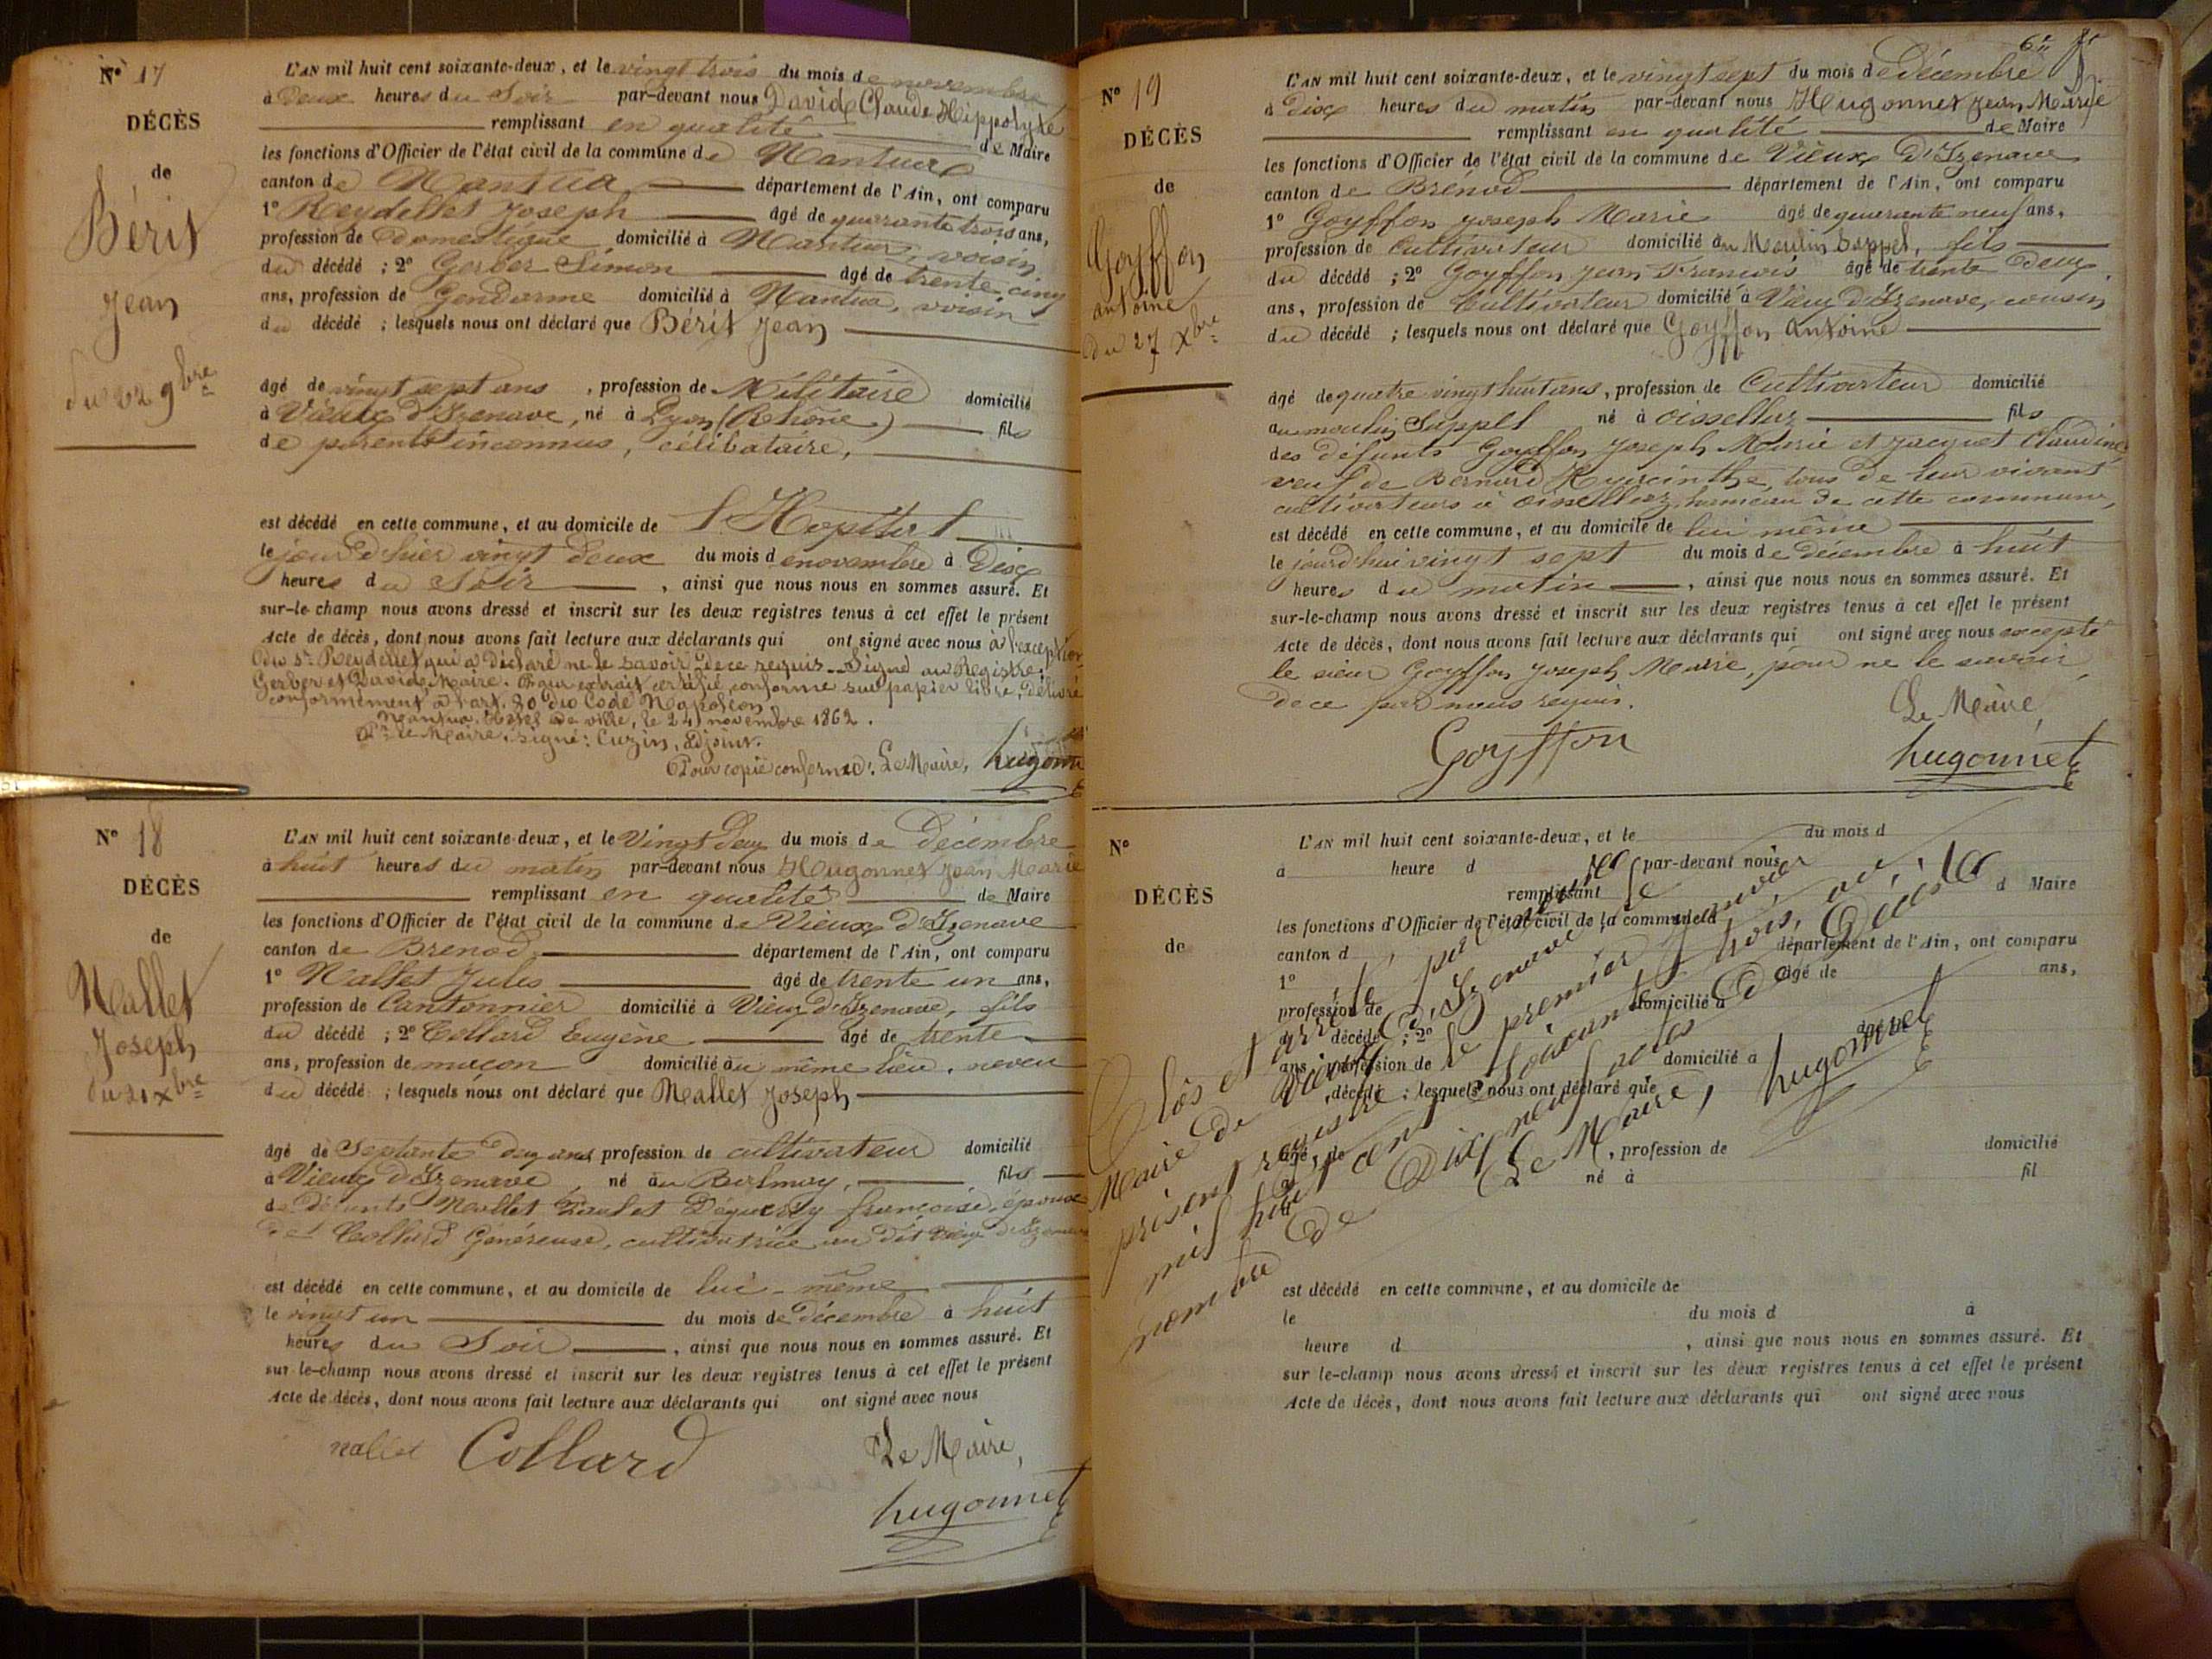 N° 17
DÉCÈS
de
Bérit
Jean
du 22 9bre
L'AN mil huit cent soixante-deux, et le vingt trois du mois de novembre
à Deux heures du Soir par-devant nous David Claude Hippolyte
remplissant en qualité de Maire
les fonctions d'Officier de l'état civil de la commune de Nantua
canton de Nantua département de l'Ain, ont comparu
1° Reydellet Joseph âgé de quarante trois ans,
profession de Domestique domicilié à Nantua, voisin
du décédé ; 2° Gerber Simon âgé de trente cinq
ans, profession de Gendarme domicilié à Nantua, voisin
du décédé ; lesquels nous ont déclaré que Bérit Jean
âgé de vingt sept ans , profession de Militaire domicilié
à Vieux d'Izenave, né à Lyon (Rhône) fils
de parents inconnus, célibataire,
est décédé en cette commune, et au domicile de l'Hopital
le jour d'hier vingt deux du mois de novembre à Dix
heures du Soir , ainsi que nous nous en sommes assuré. Et
sur-le-champ nous avons dressé et inscrit sur les deux registres tenus à cet effet le présent
Acte de décès, dont nous avons fait lecture aux déclarants qui ont signé avec nous à l'exception
du sr Reydellet qui a déclaré ne le savoir de ce requis. Signé au Registre:
Gerber et David, Maire. Pour extrait certifié conforme sur papier libre, Délivré
conformément à l'art. 80 du Code Napoléon
Nantua, Hotel de ville, le 24 novembre 1862.
Pr le Maire, signé: Cuzin, adjoint.
Pour copie conforme: Le Maire, hugonnet
N° 18
DÉCÈS
de
Nallet
Joseph
du 21 Xbre
L'AN mil huit cent soixante-deux, et le Vingt Deux du mois de Décembre
à huit heures du matin par-devant nous Hugonnet Jean Marie
remplissant en qualité de Maire
les fonctions d'Officier de l'état civil de la commune de Vieux d'Izenave
canton de Brenod département de l'Ain, ont comparu
1° Nallet Jules âgé de trente un ans,
profession de Cantonnier domicilié à Vieux d'Izenave, fils
du décédé ; 2° Collard Eugène âgé de trente
ans, profession de maçon domicilié au même lieu, neveu
du décédé ; lesquels nous ont déclaré que Nallet Joseph
âgé de Septante Deux ans profession de cultivateur domicilié
à Vieux d'Izenave né au Balmay, fils
de Défunts Nallet et françoise, époux
de Collard Généreuse, cultivatrice au dit Vieux d'Izenave
est décédé en cette commune, et au domicile de lui-même
le vingt un du mois de Décembre à huit
heures du Soir , ainsi que nous nous en sommes assuré. Et
sur-le-champ nous avons dressé et inscrit sur les deux registres tenus à cet effet le présent
Acte de décès, dont nous avons fait lecture aux déclarants qui ont signé avec nous
nallet Collard Le Maire,
hugonnet
6e
N° 19
DÉCÈS
de
Goyffon
antoine
du 27 Xbre
L'AN mil huit cent soixante-deux, et le vingt sept du mois de décembre
à Dix heures du matin par-devant nous Hugonnet Jean Marie
remplissant en qualité de Maire
les fonctions d'Officier de l'état civil de la commune de Vieux D'Izenave
canton de Brénod département de l'Ain, ont comparu
1° Goyffon Joseph Marie âgé de quarante neuf ans,
profession de Cultivateur domicilié au Moulin Sappel, fils
du décédé ; 2° Goyffon Jean François âgé de trente Deux
ans, profession de Cultivateur domicilié à Vieux d'Izenave, cousin
du décédé ; lesquels nous ont déclaré que Goyffon antoine
âgé de quatre vingt huit ans, profession de Cultivateur domicilié
au moulin Sappel né à Oissellaz fils
des défunts Goyffon Joseph Marie et Jacquet Claudine
veuf de Bernard Hyacinthe, tous de leur vivant
cultivateurs à Oissellaz, hameau de cette commune,
est décédé en cette commune, et au domicile de lui même
le jourd'hui vingt sept du mois de Décembre à huit
heures du matin , ainsi que nous nous en sommes assuré. Et
sur-le-champ nous avons dressé et inscrit sur les deux registres tenus à cet effet le présent
Acte de décès, dont nous avons fait lecture aux déclarants qui ont signé avec nous excepté
le sieur Goyffon Joseph Marie, pour ne le savoir,
de ce par nous requis.
Le Maire,
Goyffon hugonnet
N°
DÉCÈS
de
L'AN mil huit cent soixante-deux, et le du mois d
à heure d par-devant nous
remplissant d Maire
les fonctions d'Officier de l'état civil de la commune d
canton d département de l'Ain, ont comparu
1° âgé de ans,
profession de domicilié à
d décédé ; 2° âgé de
ans, profession de domicilié à
d décédé ; lesquels nous ont déclaré que
âgé de , profession de domicilié
à né à fil
Clos et arrêté par nous
Maire de Vieux d'Izenave, le
présent registre le premier Janvier
mil huit cent soixante trois, au
nombre de Dix neuf actes de Décès
Le Maire, hugonnet
est décédé en cette commune, et au domicile de
le du mois d à
heure d , ainsi que nous nous en sommes assuré. Et
sur le-champ nous avons dressé et inscrit sur les deux registres tenus à cet effet le présent
Acte de décès, dont nous avons fait lecture aux déclarants qui ont signé avec nous